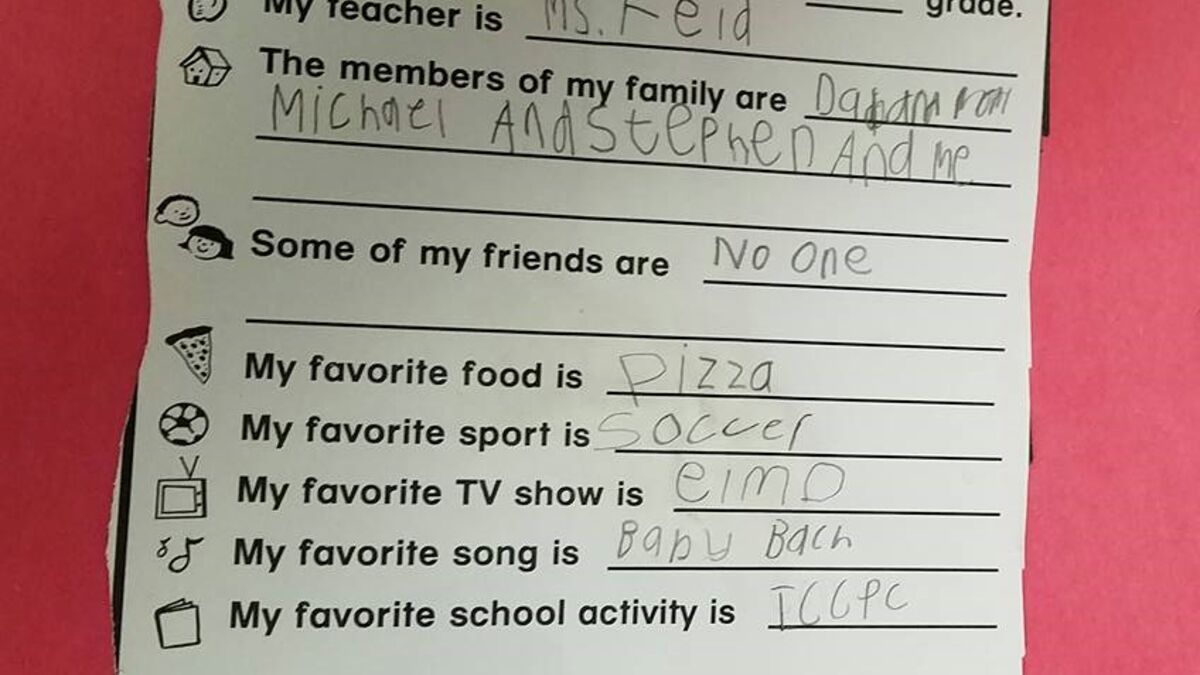 My teacher is Ms. Reid ____ grade.
The members of my family are
Michael And Stephen And me
Some of my friends are No One
My favorite food is pizza
My favorite sport is soccer
My favorite TV show is elmo
My favorite song is Baby Bach
My favorite school activity is